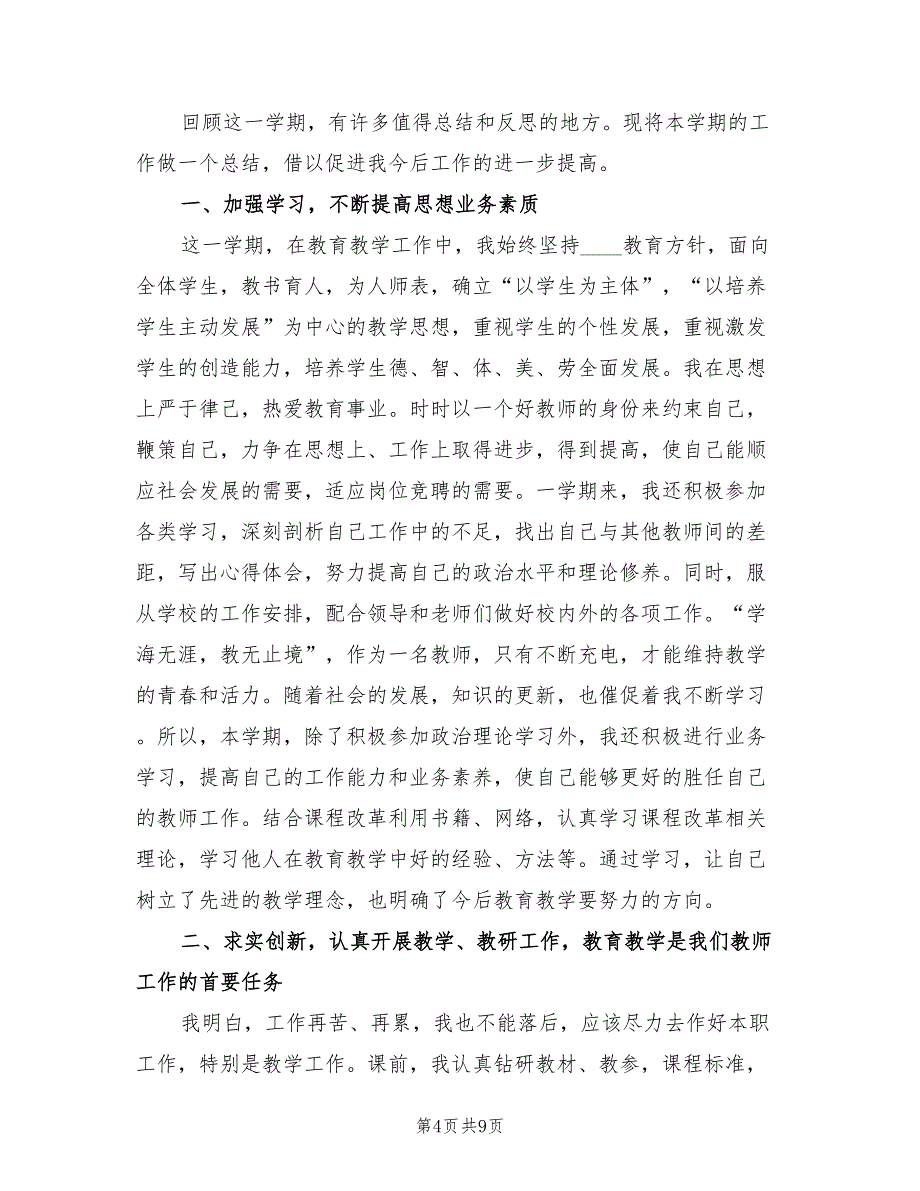 回顾这一学期，有许多值得总结和反思的地方。现将本学期的工
作做一个总结，借以促进我今后工作的进一步提高。
一、加强学习，不断提高思想业务素质
这一学期，在教育教学工作中，我始终坚持____教育方针，面向
全体学生，教书育人，为人师表，确立“以学生为主体”，“以培养
学生主动发展”为中心的教学思想，重视学生的个性发展，重视激发
学生的创造能力，培养学生德、智、体、美、劳全面发展。我在思想
上严于律己，热爱教育事业。时时以一个好教师的身份来约束自己，
鞭策自己，力争在思想上、工作上取得进步，得到提高，使自己能顺
应社会发展的需要，适应岗位竞聘的需要。一学期来，我还积极参加
各类学习，深刻剖析自己工作中的不足，找出自己与其他教师间的差
距，写出心得体会，努力提高自己的政治水平和理论修养。同时，服
从学校的工作安排，配合领导和老师们做好校内外的各项工作。“学
海无涯，教无止境”，作为一名教师，只有不断充电，才能维持教学
的青春和活力。随着社会的发展，知识的更新，也催促着我不断学习
。所以，本学期，除了积极参加政治理论学习外，我还积极进行业务
学习，提高自己的工作能力和业务素养，使自己能够更好的胜任自己
的教师工作。结合课程改革利用书籍、网络，认真学习课程改革相关
理论，学习他人在教育教学中好的经验、方法等。通过学习，让自己
树立了先进的教学理念，也明确了今后教育教学要努力的方向。
二、求实创新，认真开展教学、教研工作，教育教学是我们教师
工作的首要任务
我明白，工作再苦、再累，我也不能落后，应该尽力去作好本职
工作，特别是教学工作。课前，我认真钻研教材、教参，课程标准，
第4页共9页